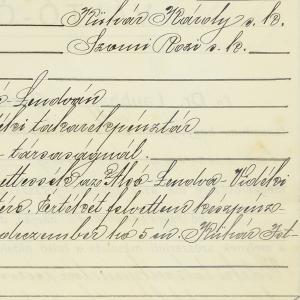 Kühár Károly s. k.
Szomi Rozi s. k.
ó-Lendván
éki takarékpénztár
társaságnál.
az Alsó Lendva-Vidéki
Értékét felvettem készpénz
deczember hó 5 én. Kühár Ist-